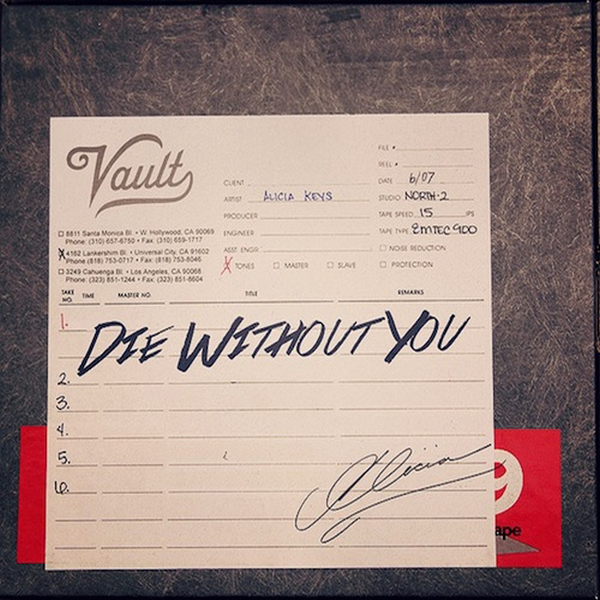 Vault
8811 Santa Monica Bl. • W. Hollywood, CA 90069
Phone: (310) 657-6750 • Fax: (310) 659-1717
4162 Lankershim Bl. • Universal City, CA 91602
Phone (818) 753-0717 • Fax: (818) 753-8046
3249 Cahuenga Bl. • Los Angeles, CA 90068
Phone: (323) 851-1244 • Fax: (323) 851-8604
CLIENT
ARTIST ALICIA KEYS
PRODUCER
ENGINEER
ASST. ENGR
X TONES MASTER SLAVE
FILE #
REEL #
DATE 6/07
STUDIO NORTH-2
TAPE SPEED 15 IPS
TAPE TYPE EMTEC 900
NOISE REDUCTION
PROTECTION
TAKE NO. TIME MASTER NO. TITLE REMARKS
1.
DIE WITHOUT YOU
2.
3.
4.
5.
6.
Alicia
9
ape